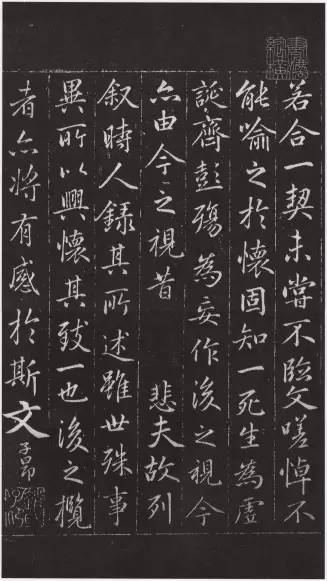 若合一契未嘗不臨文嗟悼不
能喻之於懷固知一死生為虛
誕齊彭殤為妄作後之視今
亦由今之視昔 悲夫故列
叙時人錄其所述雖世殊事
異所以興懷其致一也後之攬
者亦將有感於斯文 子昂